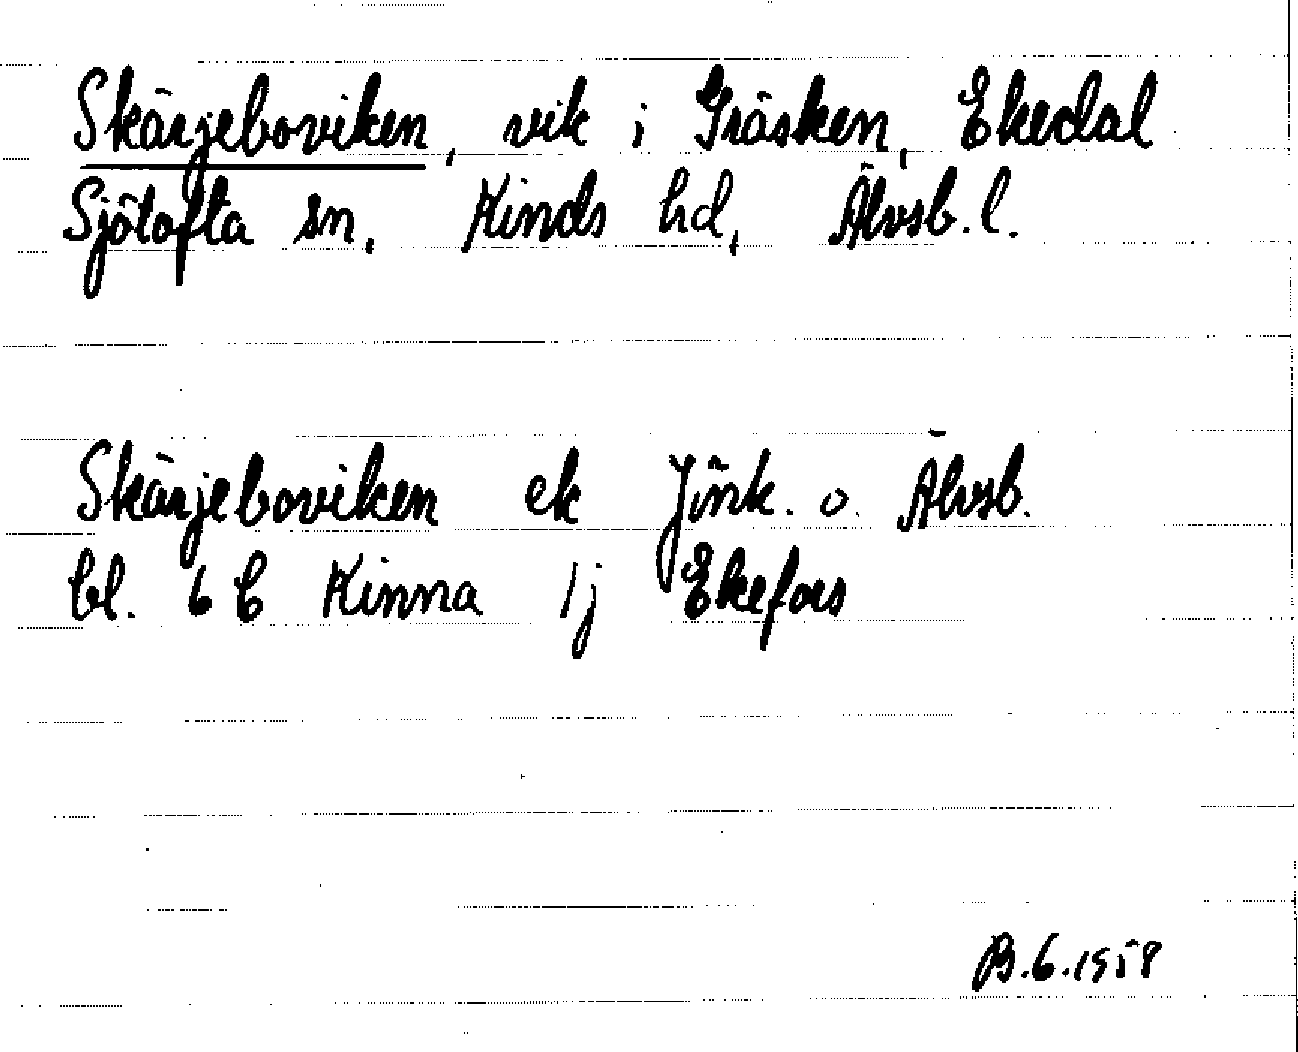 Skärjeboviken, vik i Gräsken, Ekedal
Sjötofta sn, Kinds hd, Älvsb. l.
Skärjeboviken ek Jönk. o. Älvsb.
bl. 6 C Kinna 1j Ekefors
B.G.1958